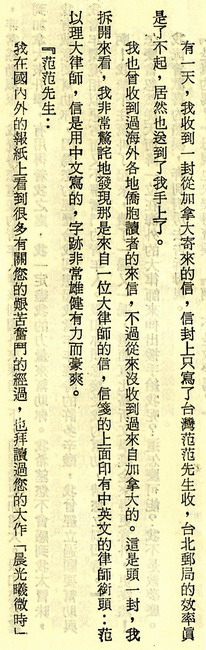 有一天，我收到一封從加拿大寄來的信，信封上只寫了台灣范范先生收，台北郵局的效率眞
是了不起，居然也送到了我手上了。
我也曾收到過海外各地僑胞讀者的來信，不過從來沒收到過來自加拿大的。這是頭一封，我
拆開來看，我非常驚詫地發現那是來自一位大律師的信，信箋的上面印有中英文的律師銜頭：范
以理大律師，信是用中文寫的，字跡非常雄健有力而豪爽。
『范范先生：
我在國內外的報紙上看到很多有關您的艱苦奮鬥的經過，也拜讀過您的大作「晨光曦微時」